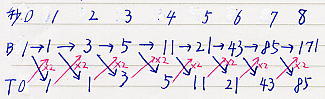 秒 0 1 2 3 4 5 6 7 8
B 1→1→3→5→11→21→43→85→171
×2 ×2 ×2 ×2 ×2 ×2 ×2 ×2
T 0 1 1 3 5 11 21 43 85